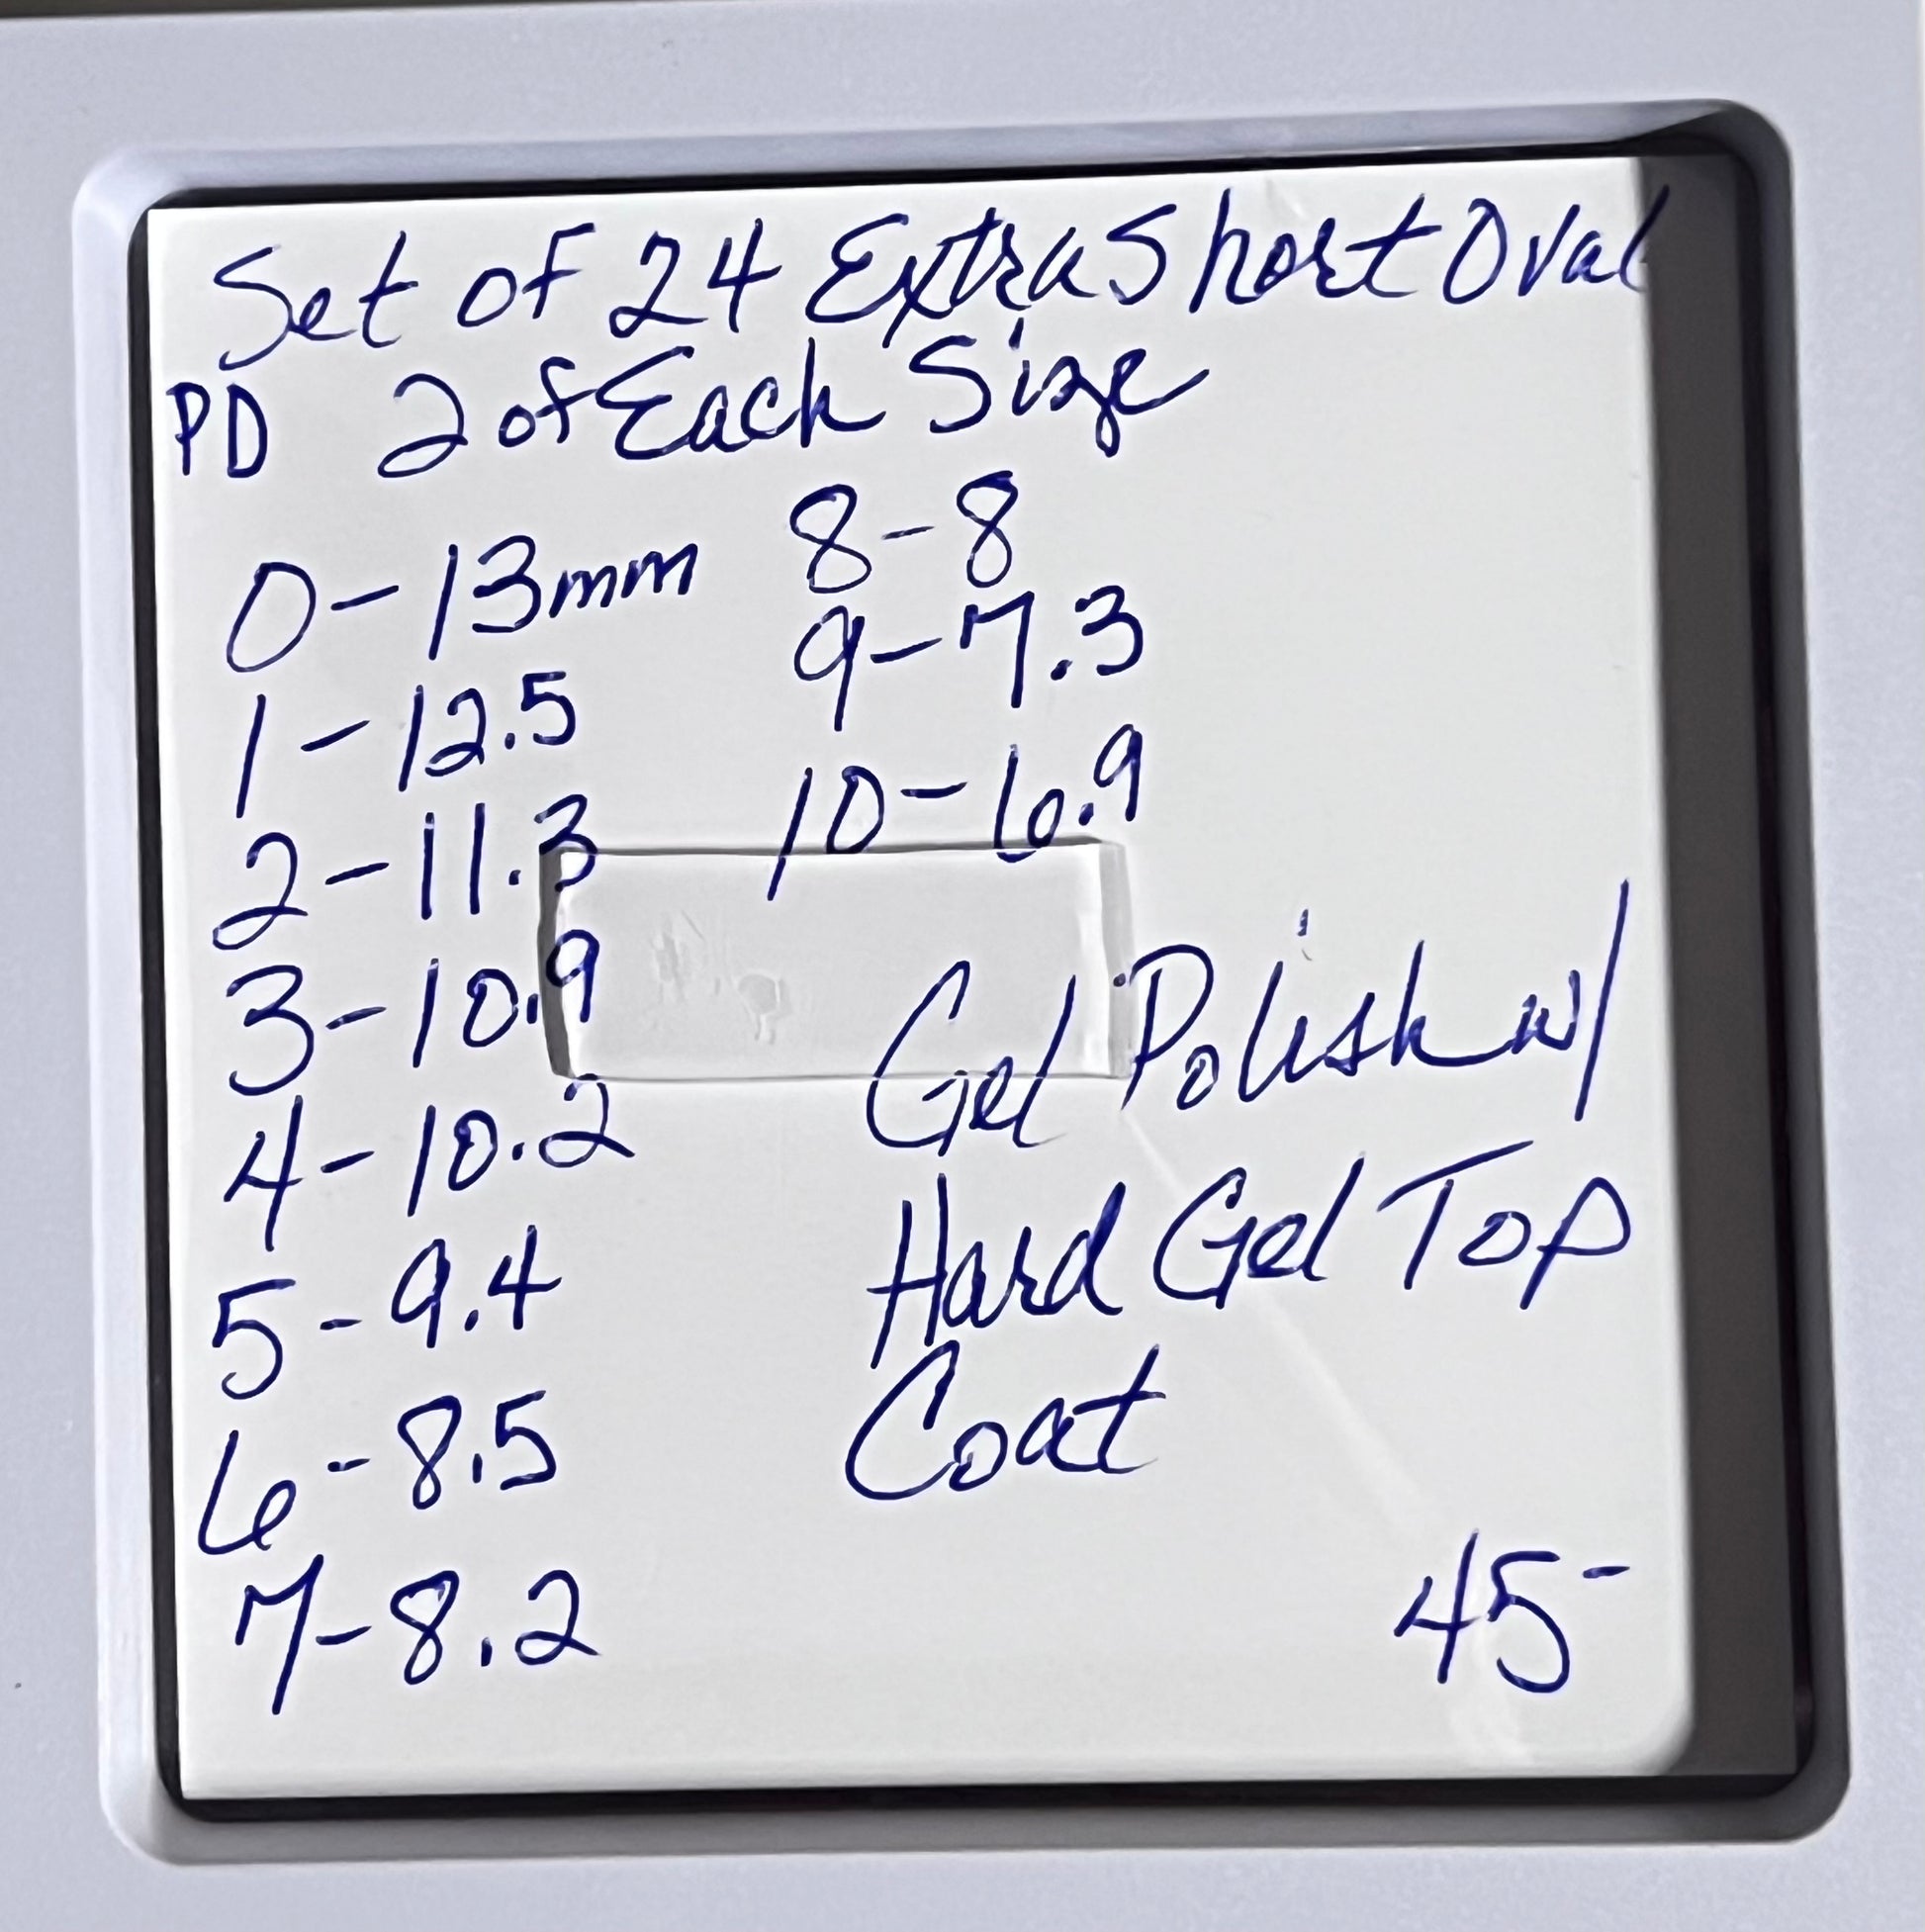 Set of 24 Extra Short Oval
PD 2 of Each Size
0-13mm
1-12.5
2-11.3
3-10.9
4-10.2
5-9.4
6-8.5
7-8.2
8-8
9-7.3
10-6.9
Gel Polish w/
Hard Gel Top
Coat
45-